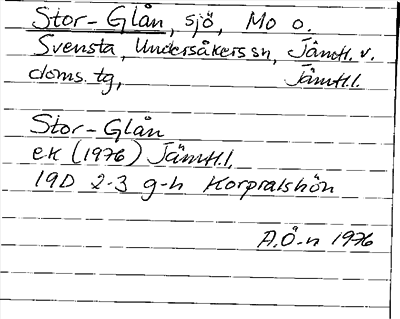 Stor-Glån, sjö, Mo o.
Svensta, Undersåkers sn, Jämtl. v.
doms. tg, Jämtl.l.
Stor-Glån
ek (1976) Jämtl.l.
19D 2-3 g-h Korpralshön
A.Ö-n 1976